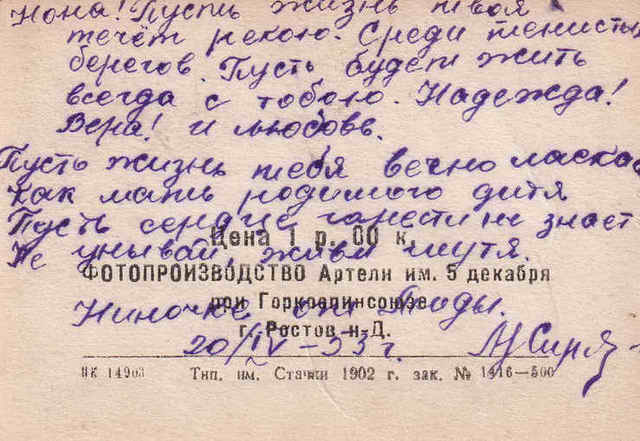 Нона! Пусть жизнь твоя
течёт рекою. Среди тенистых
берегов. Пусть будет жить
всегда с тобою. Надежда!
Вера! и любовь.
Пусть жизнь тебя вечно ласка
как мать родимого дитя
Пусть сердце горести не знает
Не унывай, живи шутя.
Цена 1 р. 00 к.
ФОТОПРОИЗВОДСТВО Артели им. 5 декабря
Ниночке от Лиды.
при Горкоопинсоюзе
г. Ростов н-Д.
20/IV-53 г.
ПК 14903 Тип. им. Стачки 1902 г. зак. № 1416—500